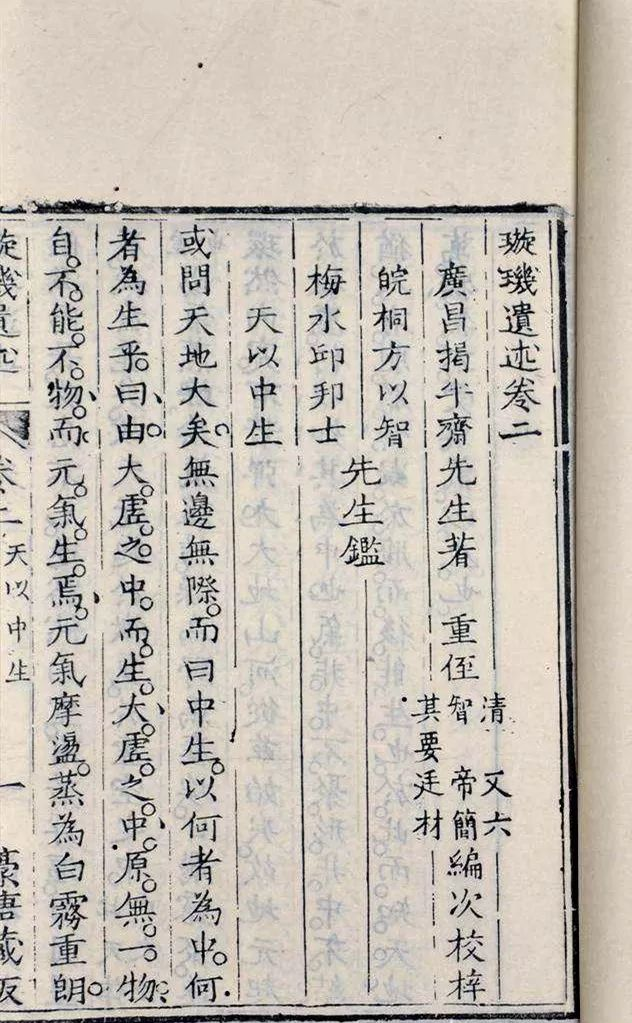 璇璣遺述卷二
廣昌揭半齋先生著 重侄
清 又六
智 帝簡
其要 廷材
編次校梓
皖桐方以智
梅水邱邦士
先生鑑
天以中生
或問天地大矣無邊無際而曰中生以何者為中何
者為生乎曰由大虛之中而生大虛之中原無一物
自不能不物而元氣生焉元氣摩盪蒸為白霧重朗
璇璣遺述
卷二
天以中生
一
藏板